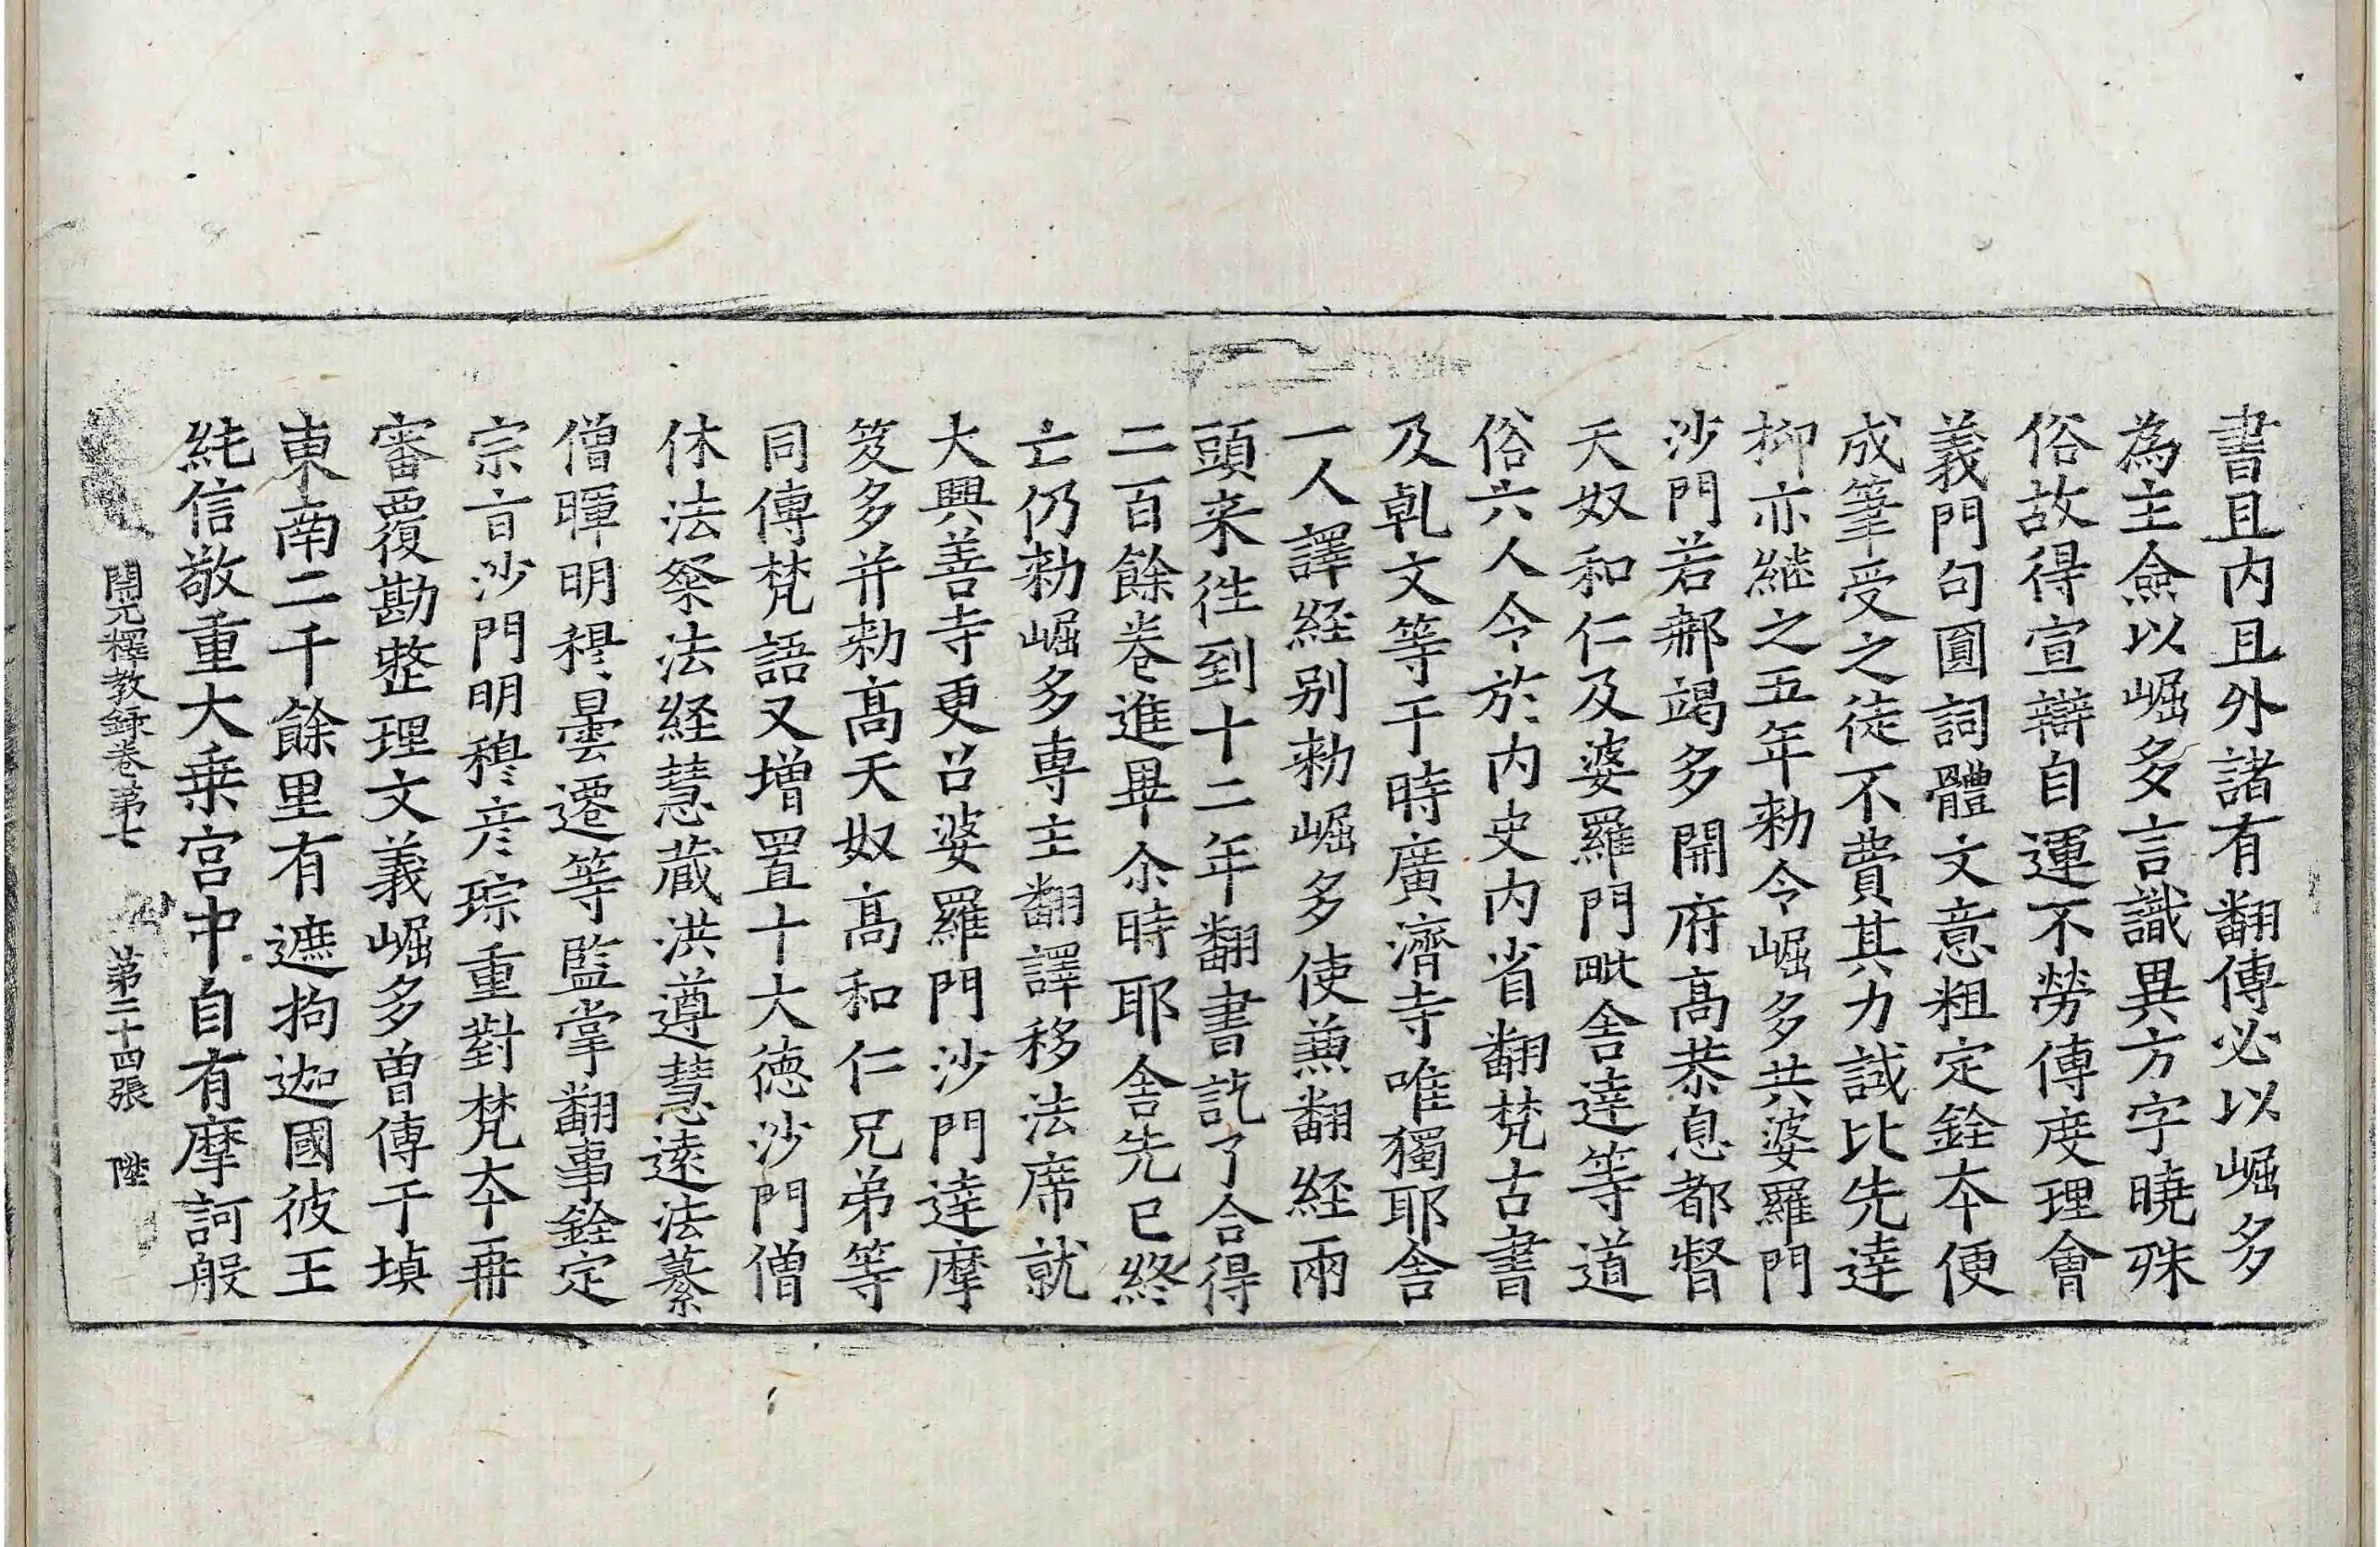 書且内且外諸有翻傳必以崛多
為主僉以崛多言識異方字曉殊
俗故得宣辯自運不勞傳度理會
義門句圓詞體文意粗定銓夲便
成筆受之徒不費其力試比先達
抑亦継之五年勑令崛多共婆羅門
沙門若那竭多開府高恭息都督
天奴和仁及婆羅門毗舍達等道
俗六人令於内史内省翻梵古書
及乹文等于時廣濟寺唯獨耶舍
一人譯経别勑崛多使兼翻経兩
頭来徃到十二年翻書訖了合得
二百餘巻進畢尒時耶舍先已終
亡仍勑崛多専主翻譯移法席就
大興善寺更召婆羅門沙門達摩
笈多并勑高天奴高和仁兄弟等
同傳梵語又增置十大德沙門僧
休法粲法経慧蔵洪遵慧遠法纂
僧暉明穆曇遷等監掌翻事銓定
宗旨沙門明穆彦琮重對梵夲再
審覆勘整理文義崛多曽傳于填
東南二千餘里有遮拘迦國彼王
純信敬重大乗宮中自有摩訶般
開元釋教録巻苐七 苐二十四張 陛